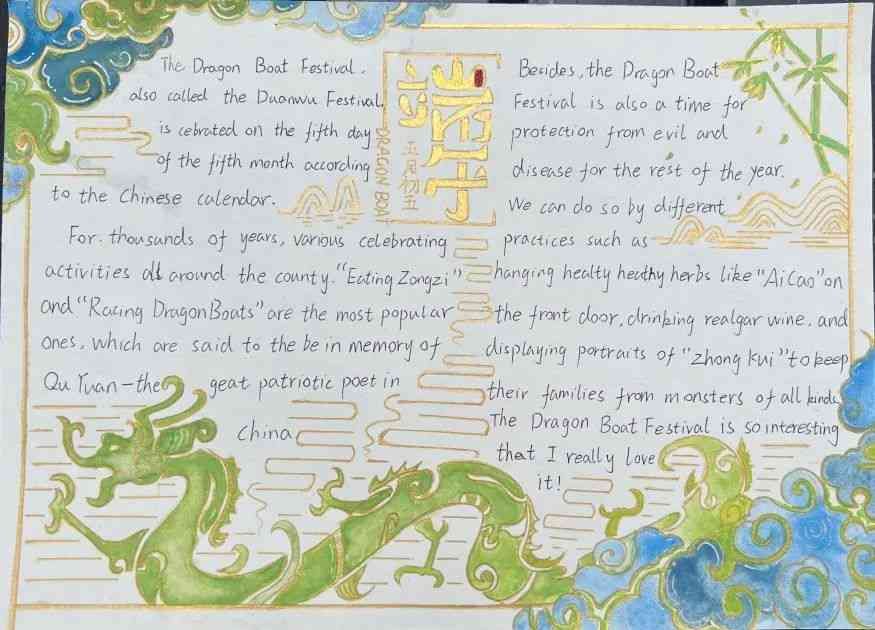 The Dragon Boat Festival.
also called the Duanwu Festival,
is cebrated on the fifth day
of the fifth month according
to the Chinese calendar.
For thousands of years, various celebrating
activities all around the county. "Eating Zongzi"
and "Racing Dragon Boats" are the most popular
ones, which are said to the be in memory of
Qu Yuan-the geat patriotic poet in
China
DRAGON BOA
五月初五
Besides, the Dragon Boat
Festival is also a time for
protection from evil and
disease for the rest of the year.
We can do so by different
practices such as
hanging healty heathy herbs like "Ai Cao" on
the front door, drinking realgar wine, and
displaying portraits of "zhong kui" to keep
their families from monsters of all kinds
The Dragon Boat Festival is so interesting
that I really love
it!